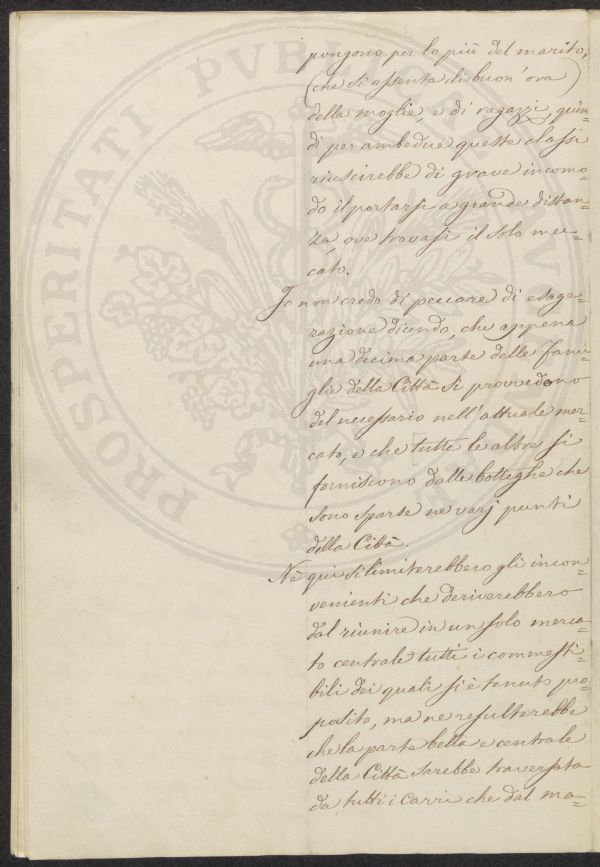 PROSPERITATI PUBLICAE
pongono per lo più del marito,
(che si assenta di buon'ora)
della moglie, e di ragazzi, quin=
di per ambedue queste classi
riuscirebbe di grave incomo=
do il portarsi a grande distan=
za, ove trovasi il solo mer=
cato.
Io non credo di peccare di esage=
razione dicendo, che appena
una decima parte delle Fami=
glie della Città si provvedono
del necessario nell'attuale mer=
cato, e che tutte le altre si
forniscono dalle botteghe che
sono sparse ne varj punti
della Città.
Nè qui si limiterebbero gli incon=
venienti che deriverebbero
dal riunire in un solo merca=
to centrale tutti i commesti=
bili dei quali si è tenuto pro=
posito, ma ne resulterebbe
che la parte bella e centrale
della Città sarebbe traversata
da tutti i carri che dal ma=